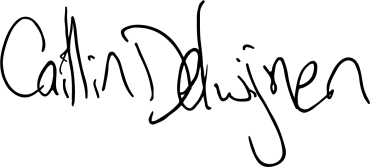 Caitlin Delwijnen